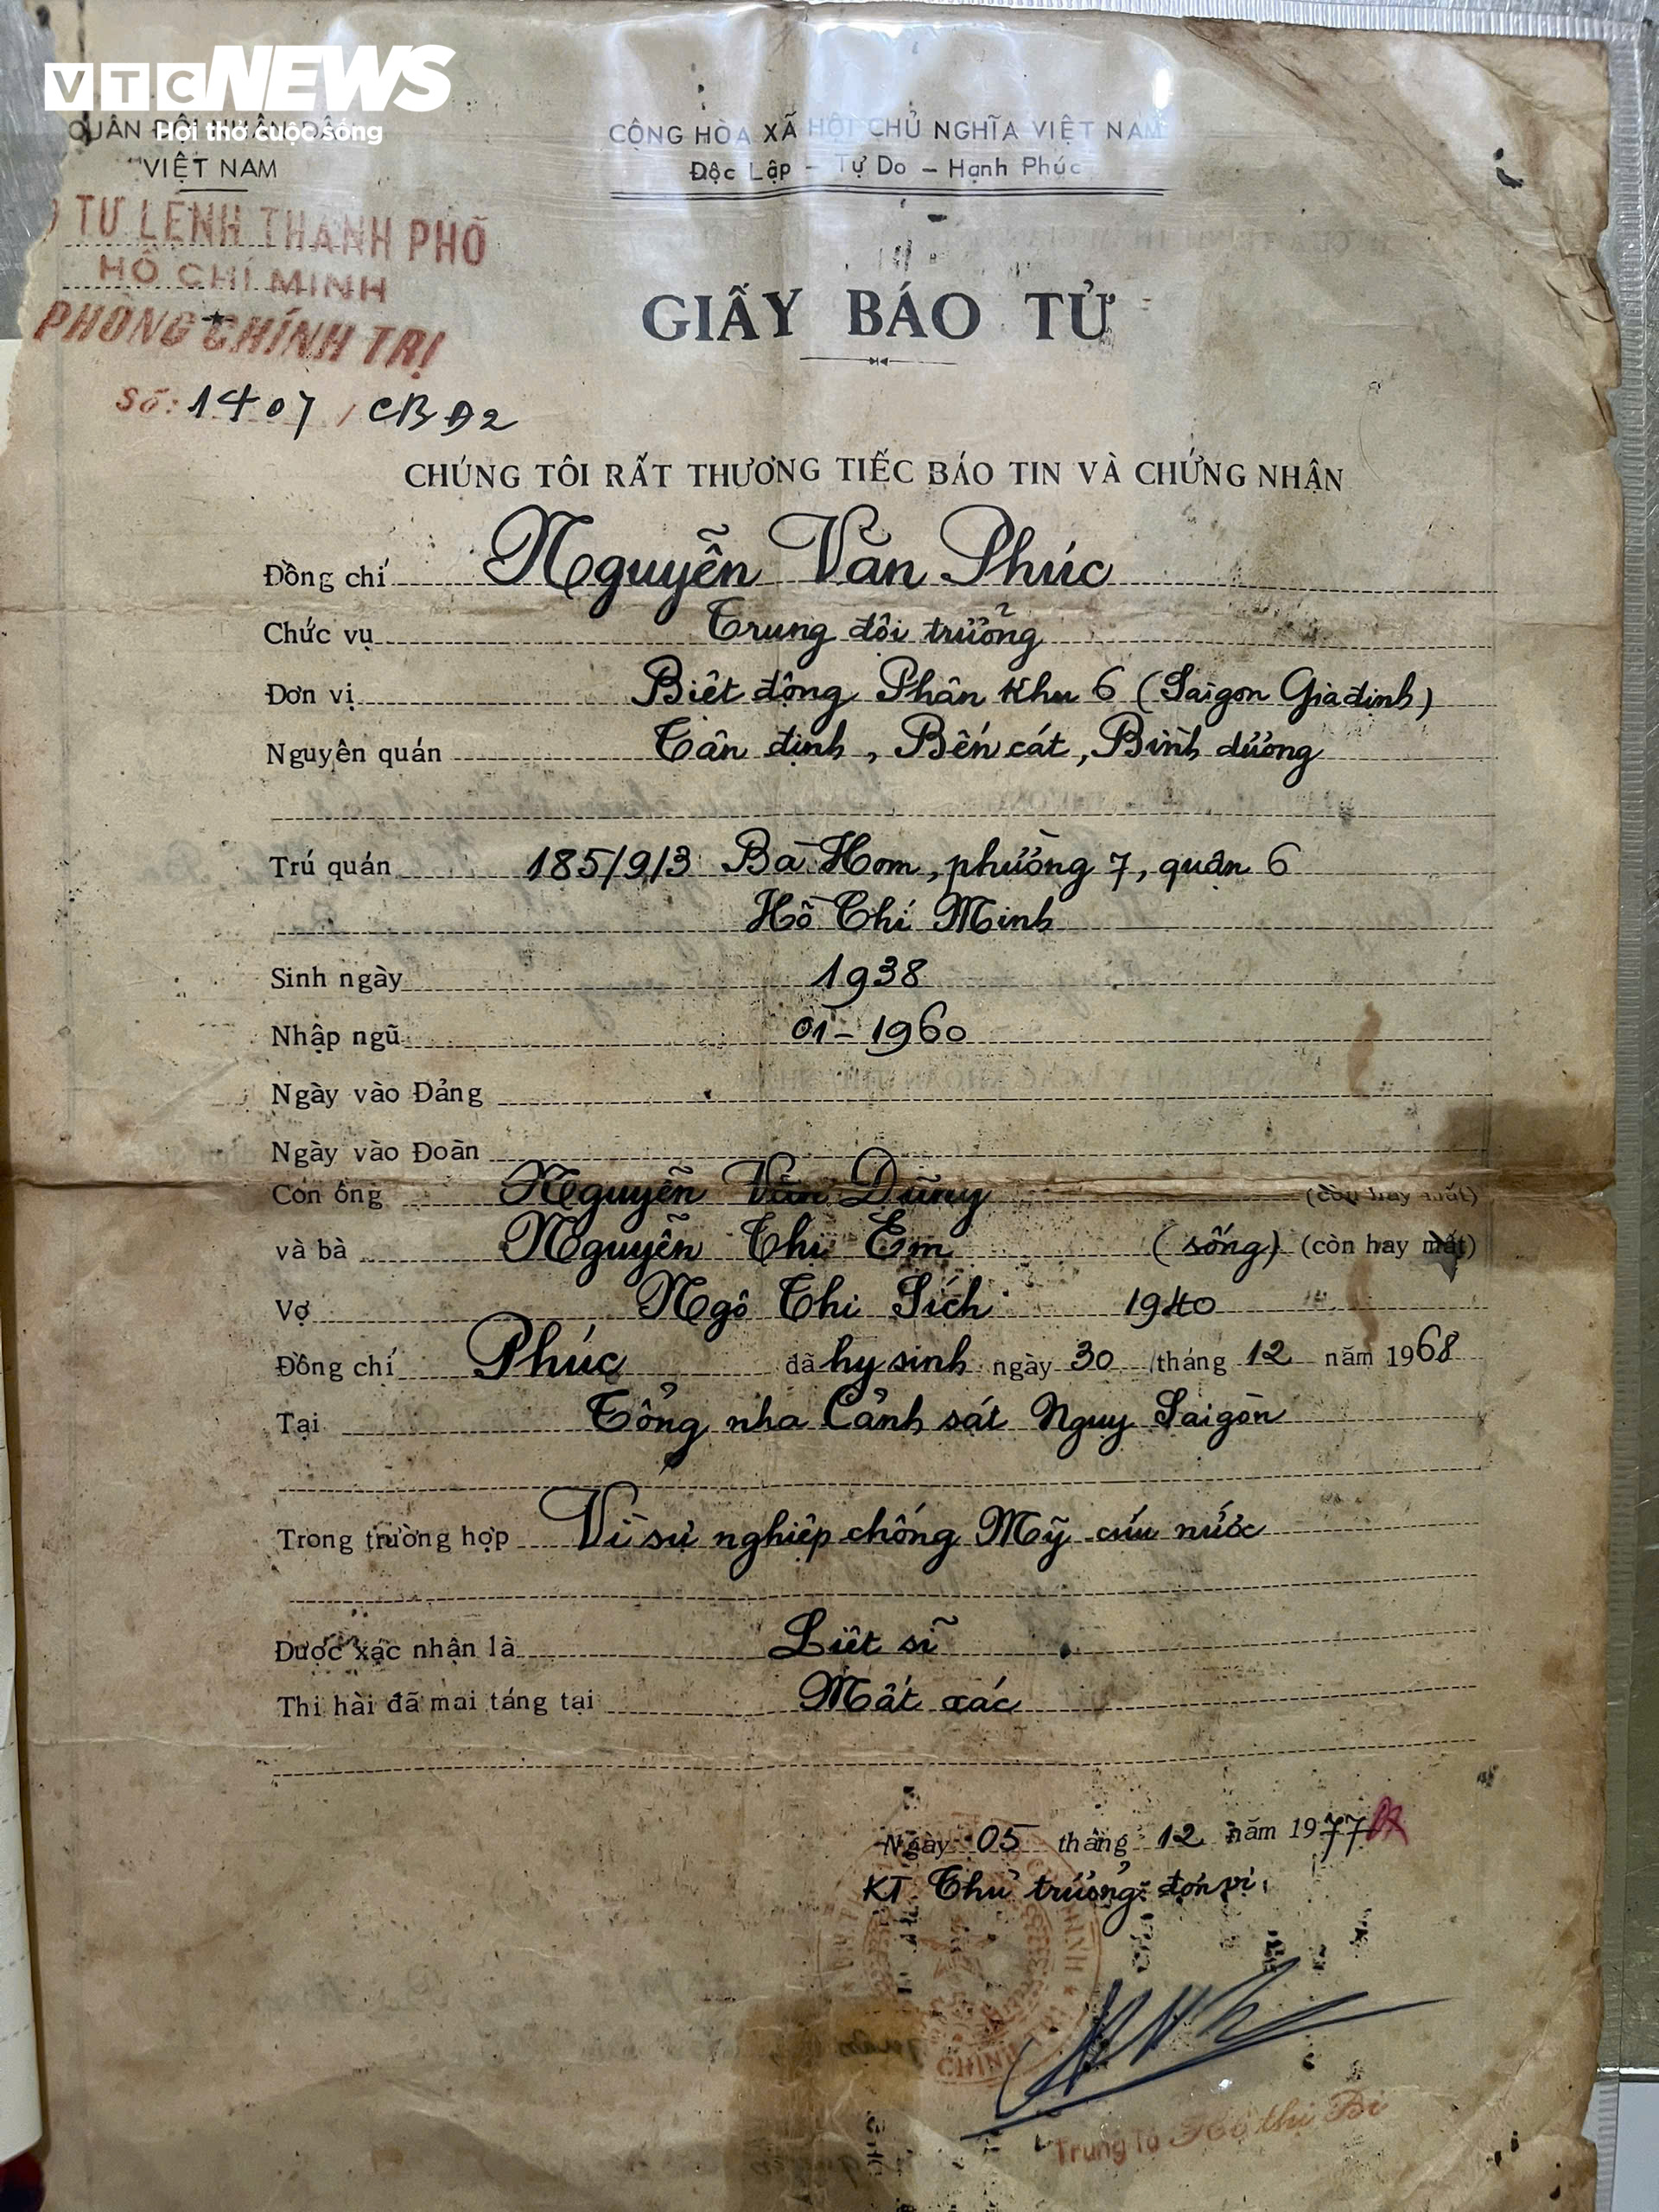 VTC NEWS
Hơi thở cuộc sống
QUÂN ĐỘI NHÂN DÂN
VIỆT NAM
TƯ LỆNH THÀNH PHỐ
HỒ CHÍ MINH
PHÒNG CHÍNH TRỊ
Số: 1407 / CBĐ2
CỘNG HÒA XÃ HỘI CHỦ NGHĨA VIỆT NAM
Độc Lập - Tự Do - Hạnh Phúc
GIẤY BÁO TỬ
CHÚNG TÔI RẤT THƯƠNG TIẾC BÁO TIN VÀ CHỨNG NHẬN
Đồng chí Nguyễn Văn Phúc
Chức vụ Trung đội trưởng
Đơn vị Biệt động Phân khu 6 (Saigon Gia định)
Nguyên quán Tân định, Bến cát, Bình dương
Trú quán 185/9/3 Bà Hom, phường 7, quận 6
Hồ Chí Minh
Sinh ngày 1938
Nhập ngũ 01-1960
Ngày vào Đảng
Ngày vào Đoàn
Con ông Nguyễn Văn Dũng (còn hay mất)
và bà Nguyễn Thị Em (sống) (còn hay mất)
Vợ Ngô Thi Sích 1940
Đồng chí Phúc đã hy sinh ngày 30 tháng 12 năm 1968
Tại Tổng nha Cảnh sát Nguy Saigòn
Trong trường hợp Vì sự nghiệp chống Mỹ cứu nước
Được xác nhận là Liệt sĩ
Thi hài đã mai táng tại Mất xác
Ngày 05 tháng 12 năm 1977
KT. Thủ trưởng đơn vị
CHÍNH
Trung tá Hồ thị Bi